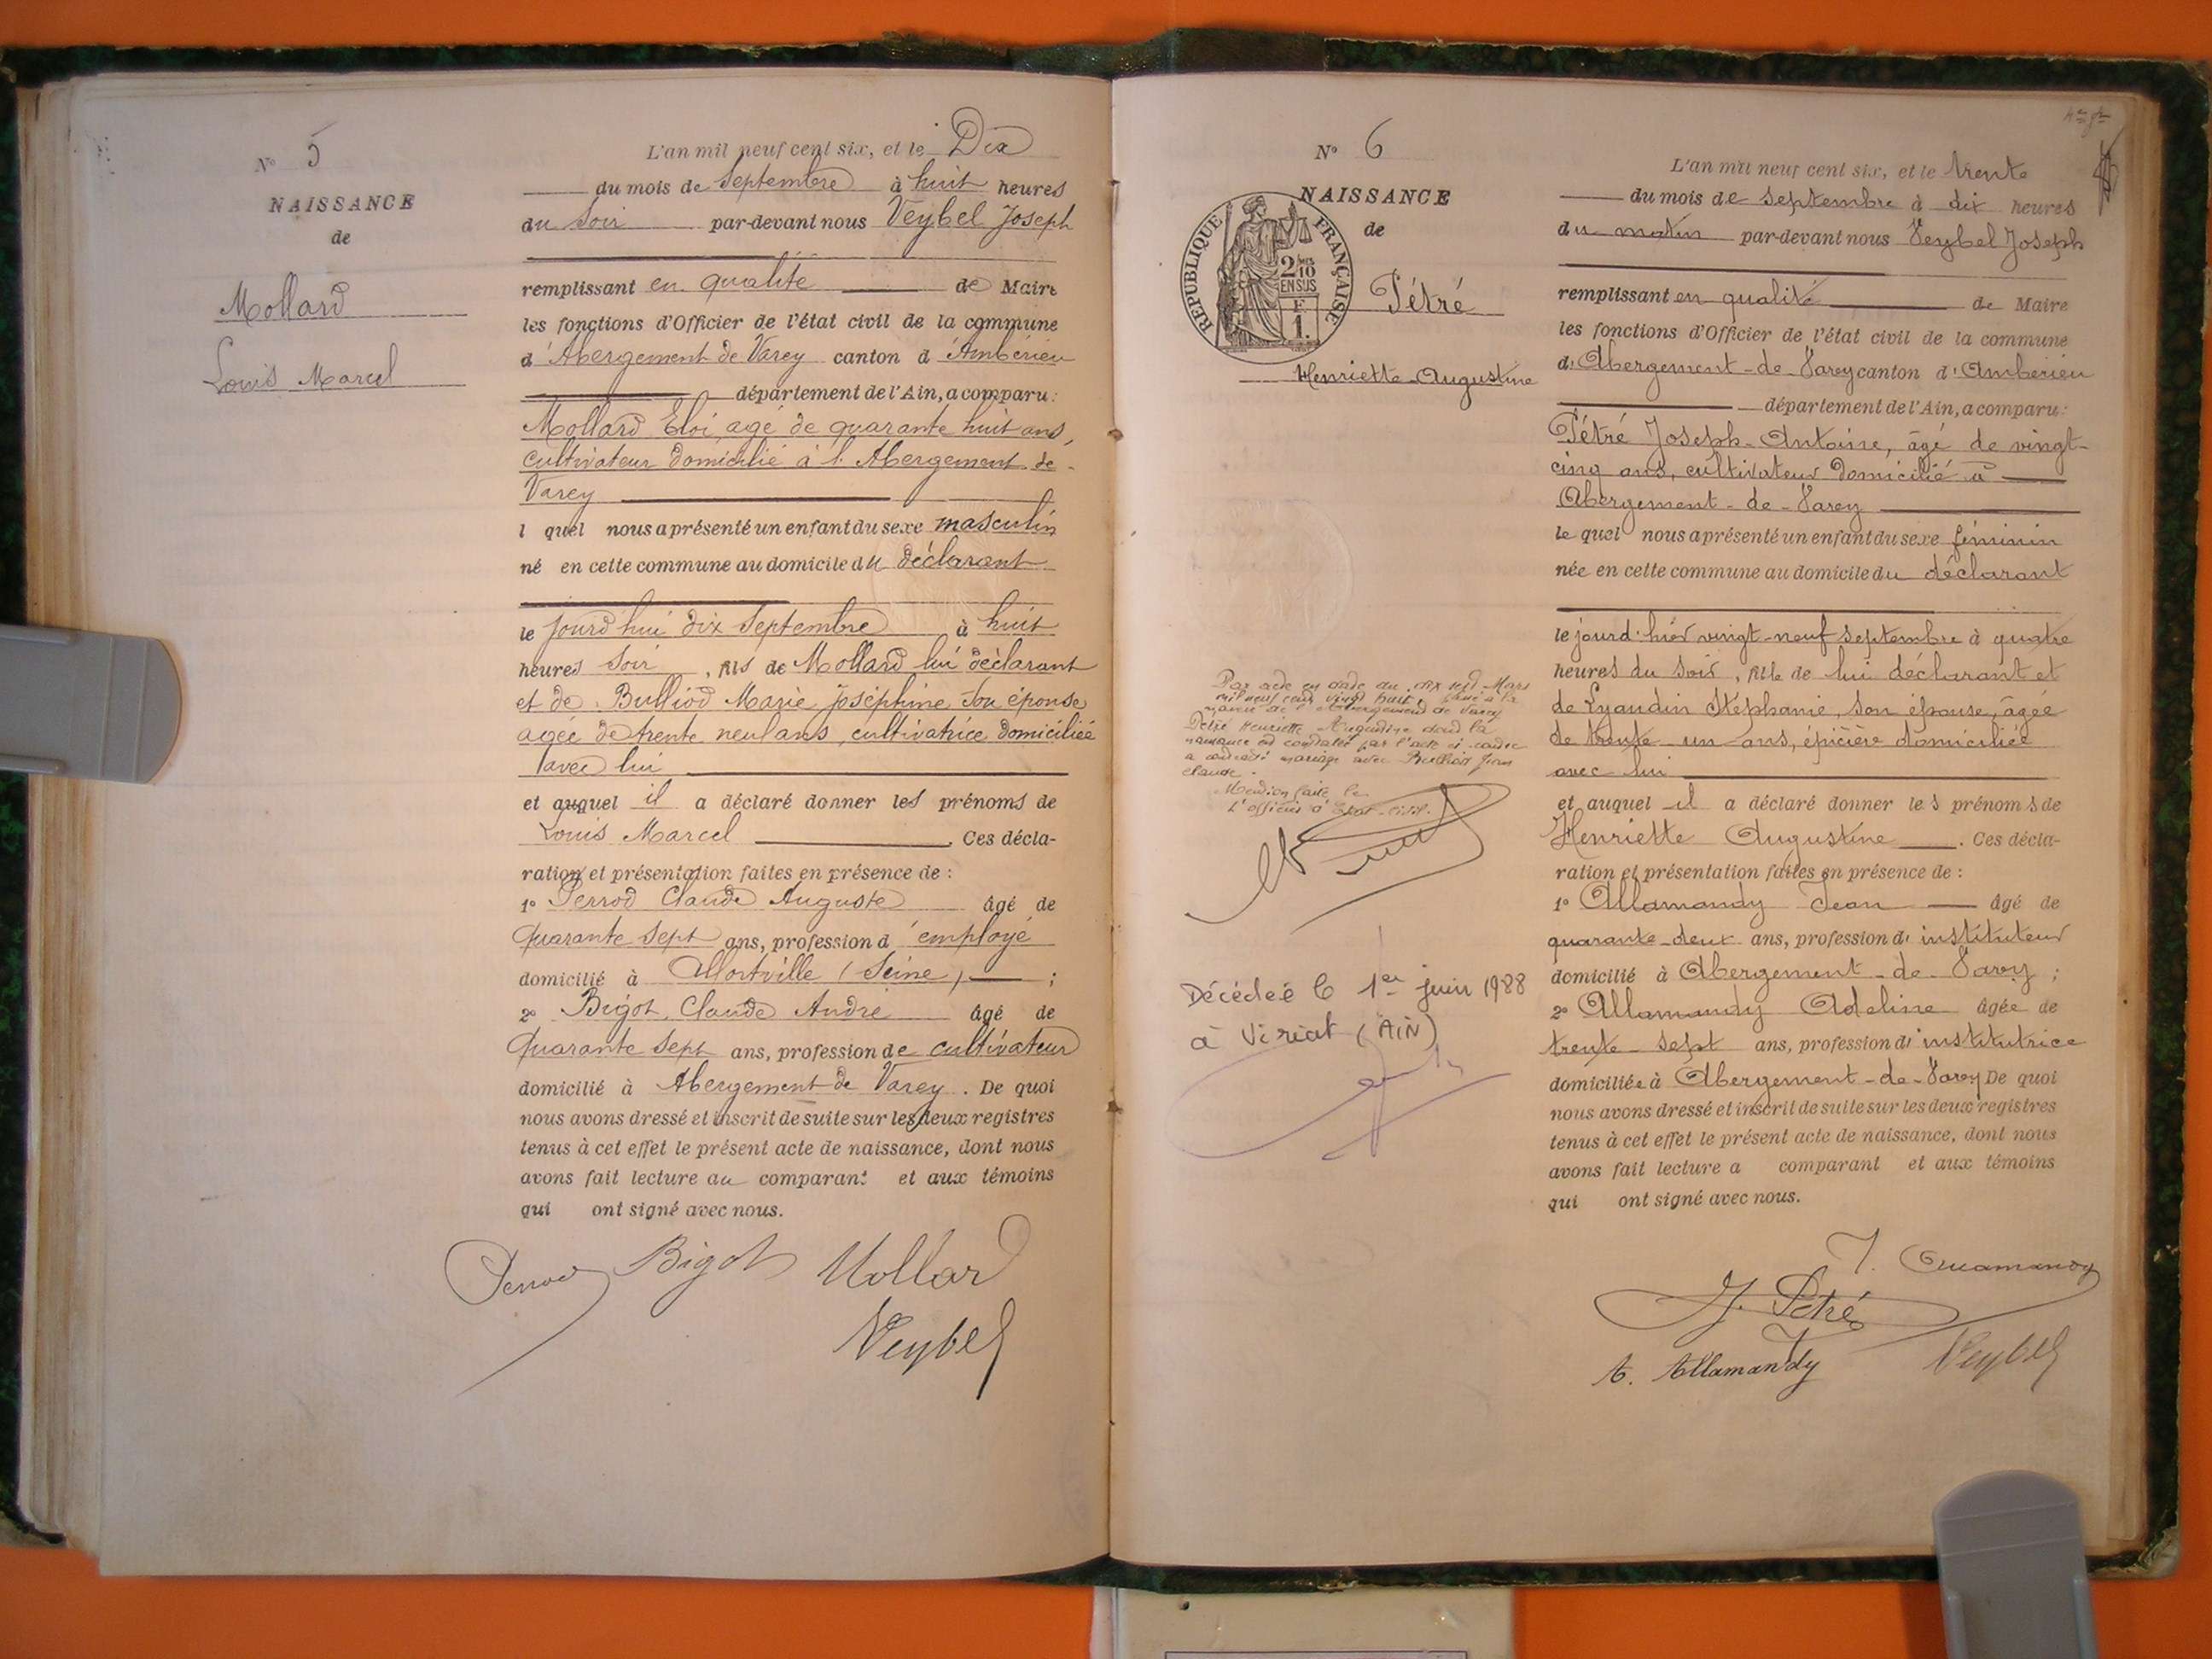 N° 5
NAISSANCE
de
Mollard
Louis Marcel
L'an mil neuf cent six, et le Dix
du mois de Septembre à huit heures
du Soir par-devant nous Veybel Joseph
remplissant en qualité de Maire
les fonctions d'Officier de l'état civil de la commune
d'Abergement de Varey canton d'Ambérieu
département de l'Ain, a comparu :
Mollard Eloi, agé de quarante huit ans,
cultivateur domicilié à l'Abergement de
Varey
l quel nous a présenté un enfant du sexe masculin
né en cette commune au domicile du déclarant
le jourd'hui dix Septembre à huit
heures Soir, fils de Mollard lui déclarant
et de Bulliod Marie joséphine son épouse
agée de trente neuf ans, cultivatrice domiciliée
avec lui
et auquel il a déclaré donner les prénoms de
Louis Marcel. Ces décla-
ration et présentation faites en présence de :
1° Perrod Claude Auguste âgé de
quarante sept ans, profession d'employé
domicilié à Alfortville (Seine) ;
2° Bigot Claude André âgé de
Quarante sept ans, profession de cultivateur
domicilié à Abergement de Varey. De quoi
nous avons dressé et inscrit de suite sur les deux registres
tenus à cet effet le présent acte de naissance, dont nous
avons fait lecture au comparant et aux témoins
qui ont signé avec nous.
Perrod Bigot Mollard
Veybel
N° 6
NAISSANCE
de
RÉPUBLIQUE FRANÇAISE
2/10
EN SUS
F.
1.
Pétré
Henriette-Augustine
Par acte en date du dix sept Mars
mil neuf cent vingt huit, à la
mairie de l'Abergement de Varey
Pétré Henriette Augustine dont la
naissance est constatée par l'acte ci-contre
a contracté mariage avec Bulliod Jean
Claude.
Mention faite le
L'officier d'Etat-civil.
Décédée le 1er juin 1988
à Viriat (AIN)
L'an mil neuf cent six, et le trente
du mois de septembre à dix heures
du matin par-devant nous Veybel Joseph
remplissant en qualité de Maire
les fonctions d'Officier de l'état civil de la commune
d'Abergement-de-Varey canton d'Ambérieu
département de l'Ain, a comparu :
Pétré Joseph-Antoine, âgé de vingt-
cinq ans, cultivateur domicilié à
Abergement-de-Varey
lequel nous a présenté un enfant du sexe féminin
née en cette commune au domicile du déclarant
le jourd'hier vingt-neuf septembre à quatre
heures du soir, fille de lui déclarant et
de Lyaudin Stéphanie, son épouse, âgée
de trente un ans, épicière domiciliée
avec lui
et auquel il a déclaré donner les prénoms de
Henriette Augustine. Ces décla-
ration et présentation faites en présence de :
1° Allamandy Jean âgé de
quarante-deux ans, profession d'instituteur
domicilié à Abergement-de-Varey ;
2° Allamandy Adeline âgée de
trente-sept ans, profession d'institutrice
domiciliée à Abergement-de-Varey De quoi
nous avons dressé et inscrit de suite sur les deux registres
tenus à cet effet le présent acte de naissance, dont nous
avons fait lecture a comparant et aux témoins
qui ont signé avec nous.
J. Allamandy
J. Pétré
A. Allamandy Veybel